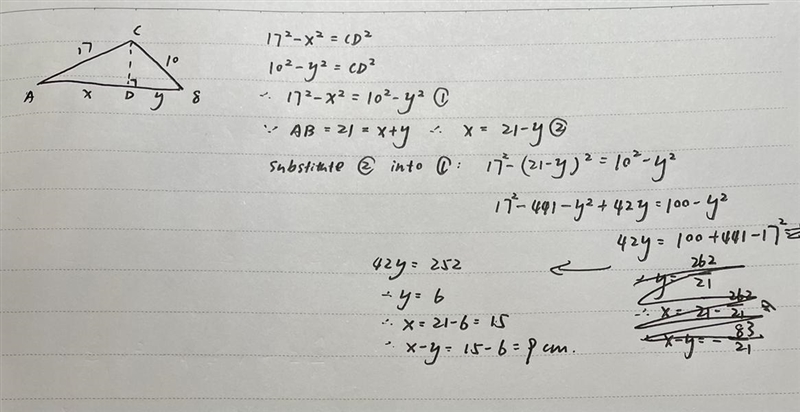 C
17
10
A
x
D
y
B
17² - x² = CD²
10² - y² = CD²
∴ 17² - x² = 10² - y² ①
∵ AB = 21 = x+y ∴ x = 21-y ②
Substitute ② into ①: 17² - (21-y)² = 10² - y²
17² - 441 - y² + 42y = 100 - y²
42y = 100 + 441 - 17² =
42y = 252
∴ y = 6
∴ x = 21 - 6 = 15
∴ x-y = 15 - 6 = 9 cm.
y = 262/21
∴ x = 21 - 262/21
x-y = - 83/21